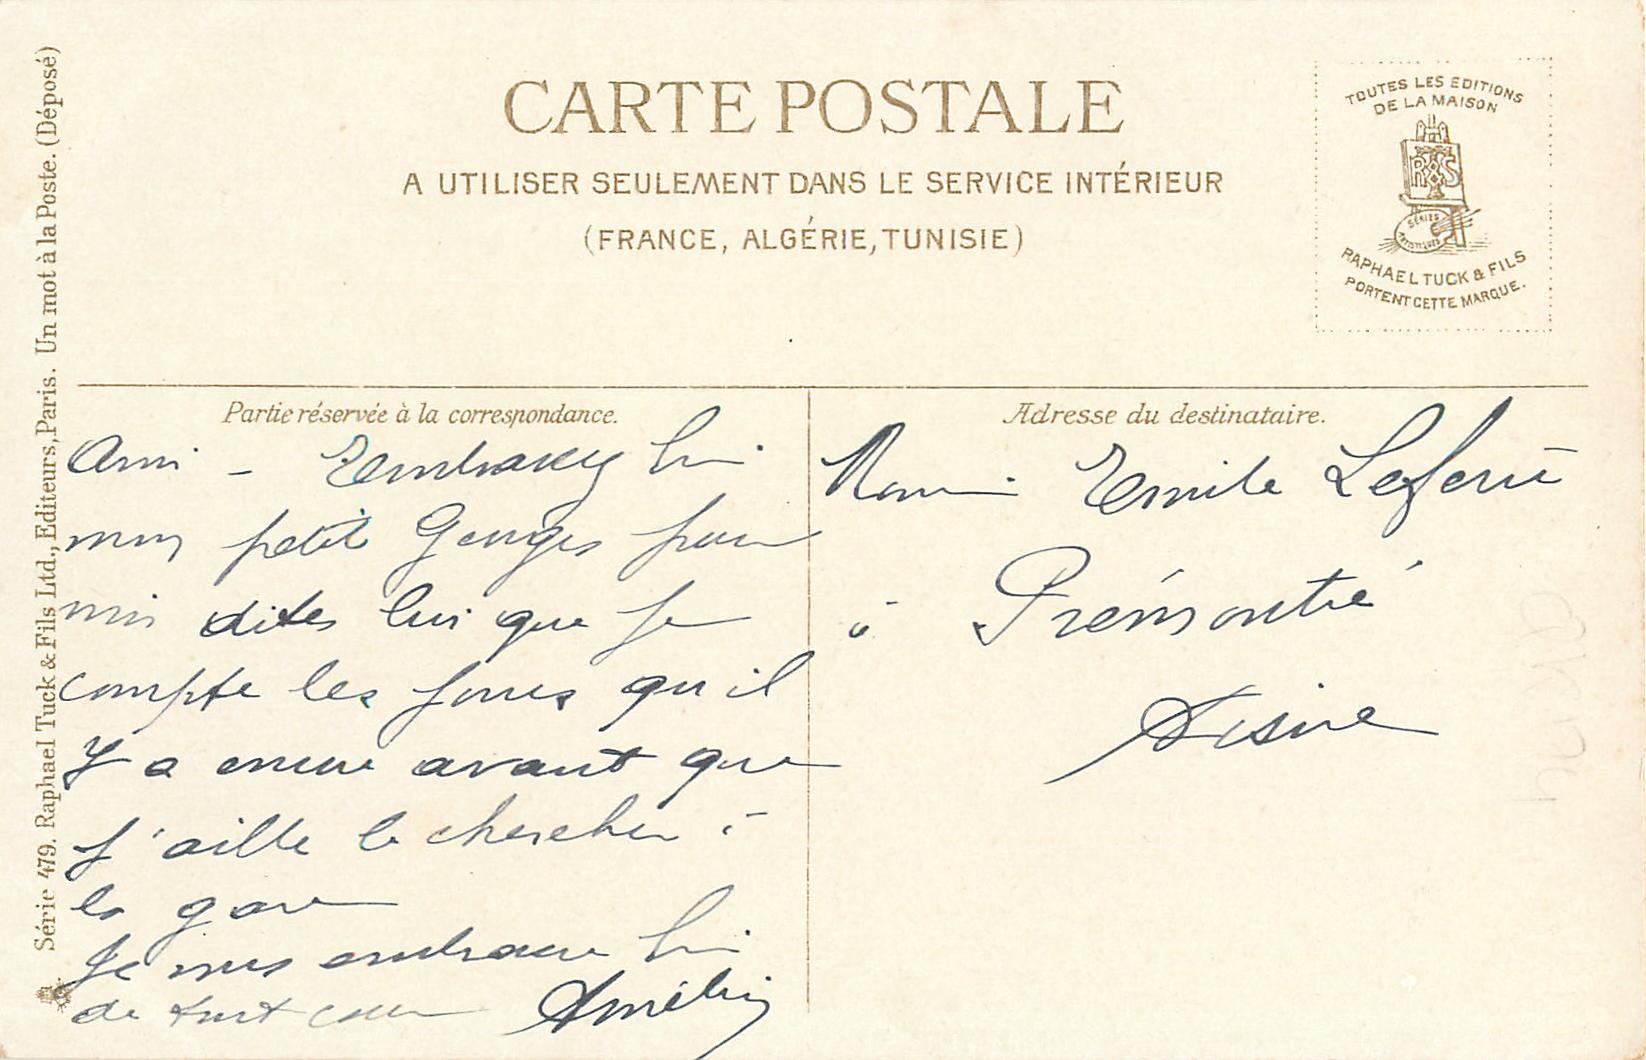 CARTE POSTALE
A UTILISER SEULEMENT DANS LE SERVICE INTÉRIEUR
(FRANCE, ALGÉRIE, TUNISIE)
TOUTES LES EDITIONS
DE LA MAISON
R & S
SÉRIES
ARTISTIQUES
RAPHAEL TUCK & FILS
PORTENT CETTE MARQUE.
Série 479. Raphael Tuck & Fils Ltd., Editeurs, Paris. Un mot à la Poste. (Déposé)
Partie réservée à la correspondance.
Ami - Embrassez bien
mon petit Georges pour
moi dites lui que je
compte les jours qu'il
Y a encore avant que
j'aille le chercher à
la gare
Je vous embrasse bien
de tout coeur
Adresse du destinataire.
Emile
à Prémontré
Aisne